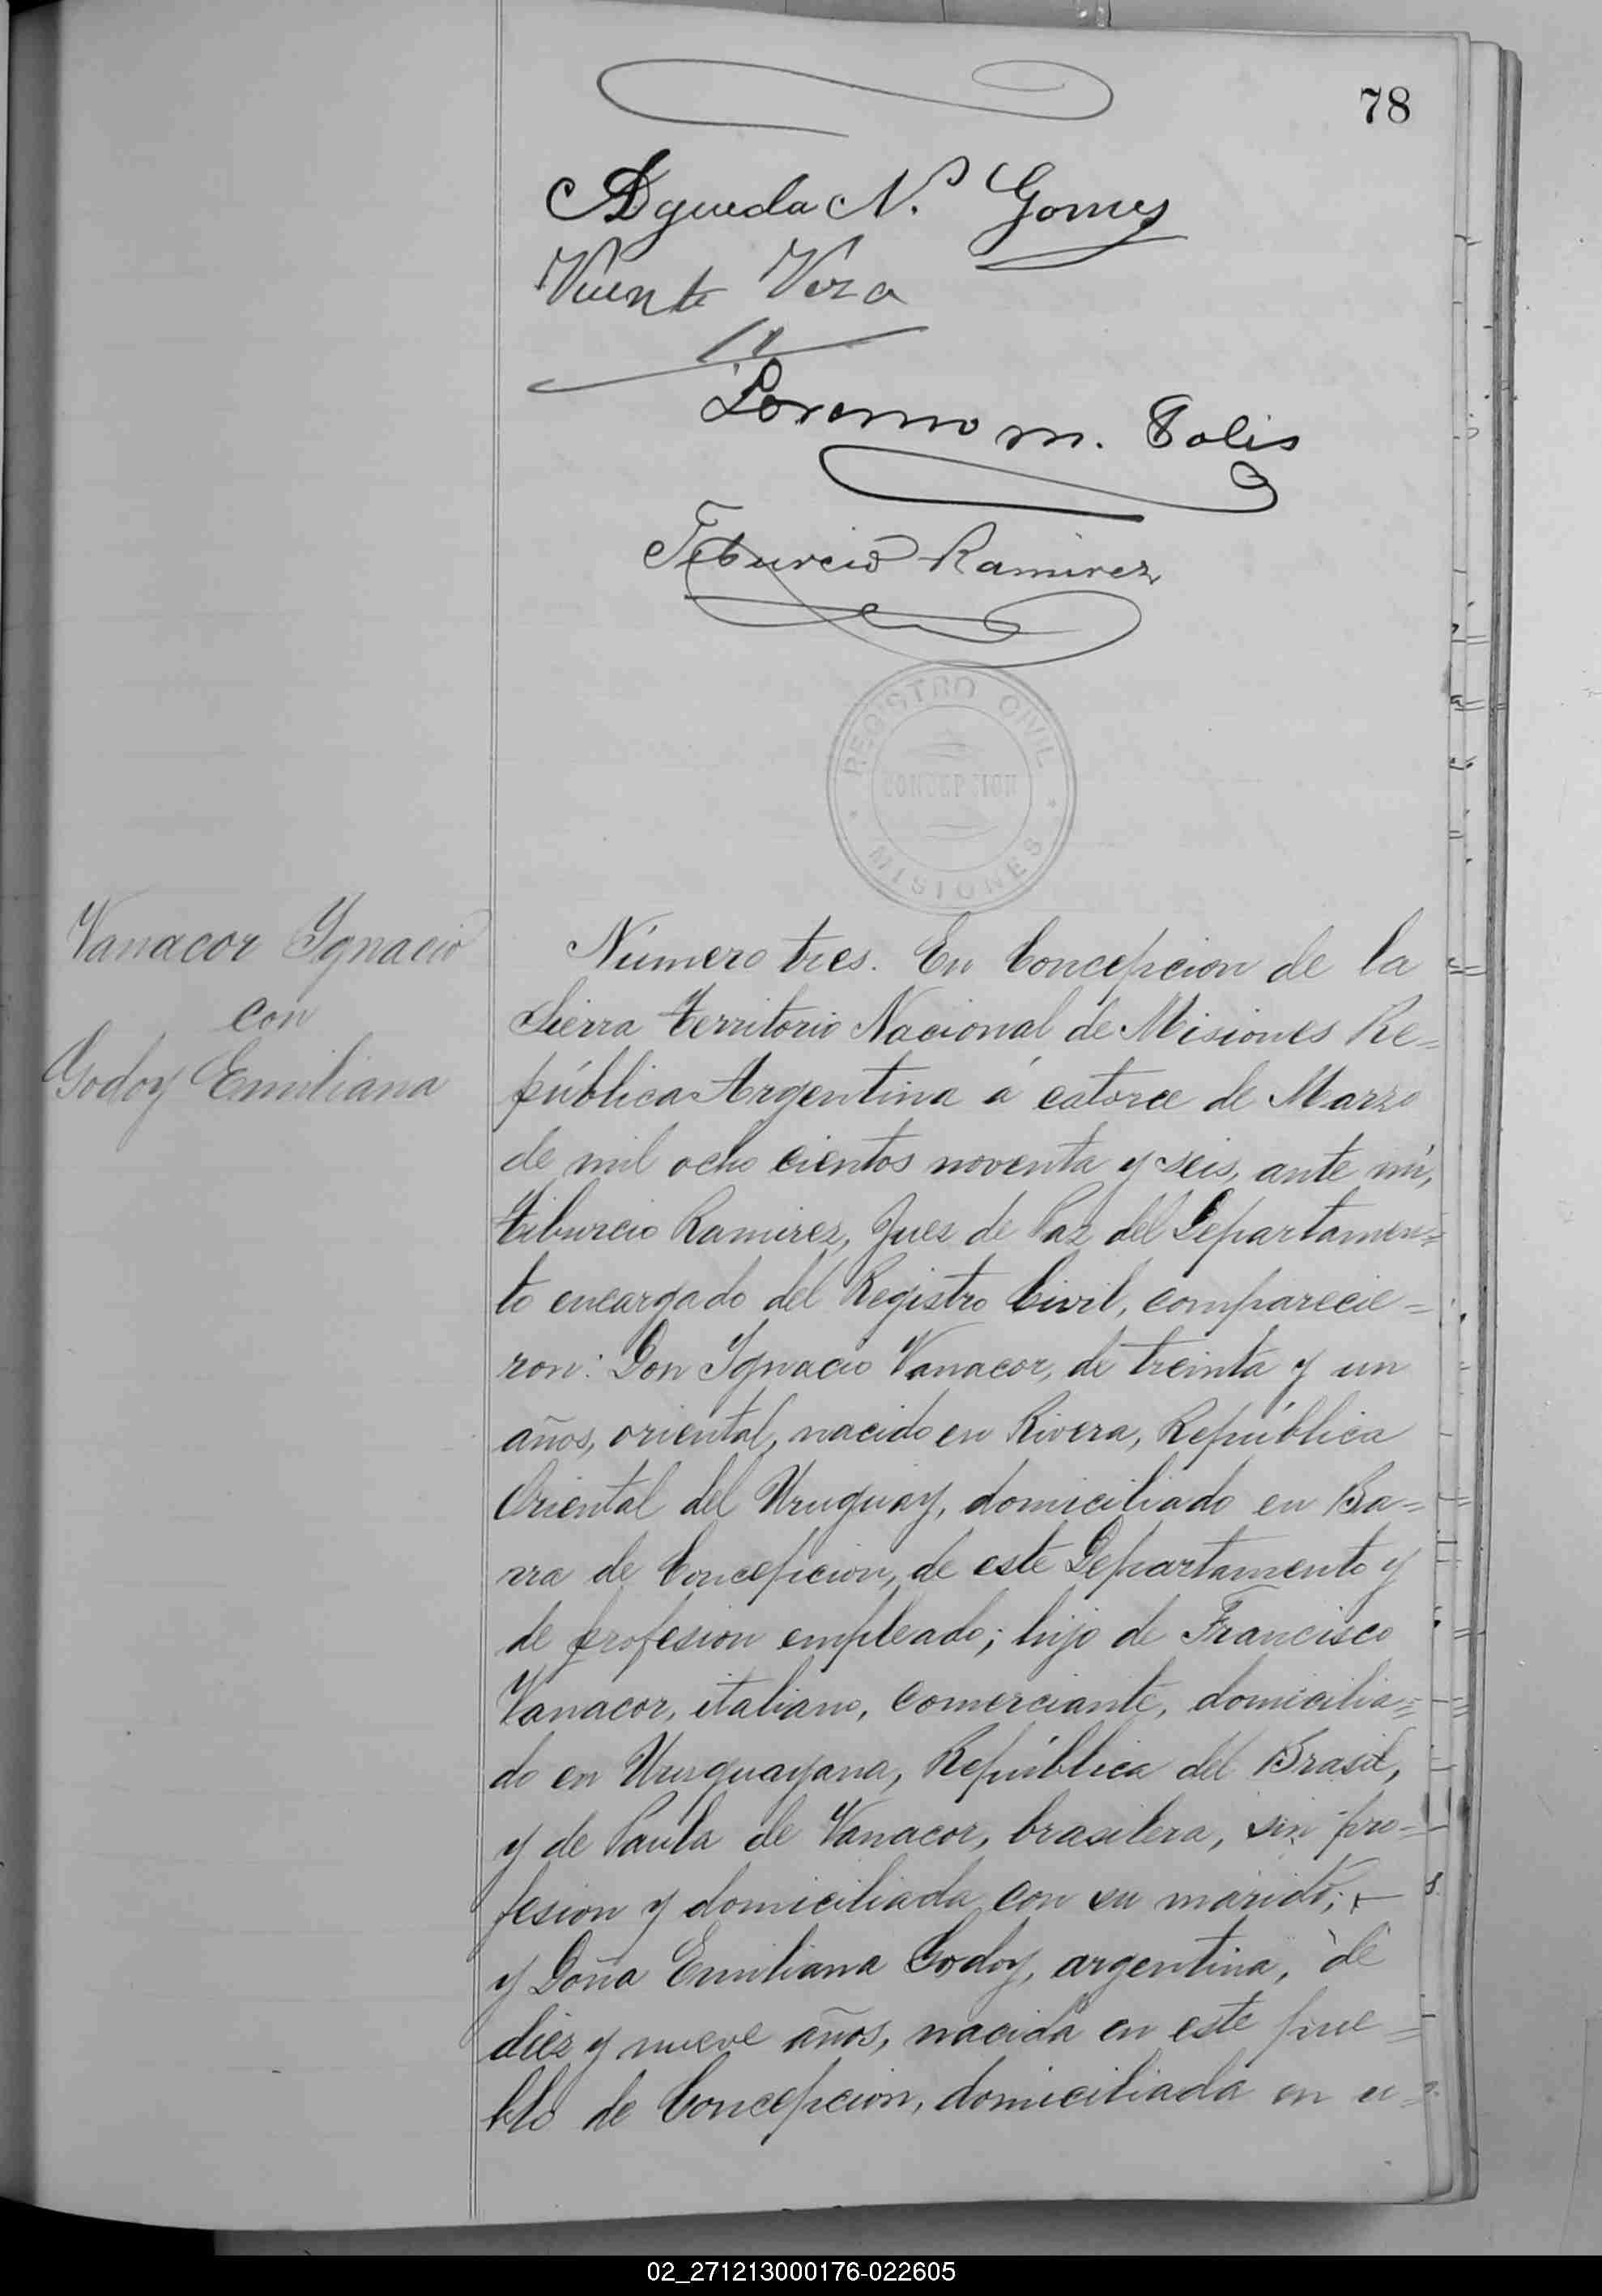 78
Agueda N. Gomez
Vicente Vera
Lorenzo M. Solis
Tiburcio Ramirez
REGISTRO CIVIL
CONCEPCION
MISIONES
Vanacor Ignacio
con
Godoy Emiliana
Número tres. En Concepcion de la
Sierra Territorio Nacional de Misiones Re=
pública Argentina á catorce de Marzo
de mil ocho cientos noventa y seis, ante mi,
Tiburcio Ramirez, Juez de Paz del Departamen=
to encargado del Registro Civil, comparecie=
ron: Don Ignacio Vanacor, de treinta y un
años, oriental, nacido en Rivera, República
Oriental del Uruguay, domiciliado en Ba=
rra de Concepcion, de este Departamento y
de profesion empleado; hijo de Francisco
Vanacor, italiano, comerciante, domicilia=
do en Uruguayana, República del Brasil,
y de Paula de Vanacor, brasilera, sin pro=
fesion y domiciliada con su marido;
y Doña Emiliana Godoy, argentina, de
diez y nueve años, nacida en este pue=
blo de Concepcion, domiciliada en
02_271213000176-022605